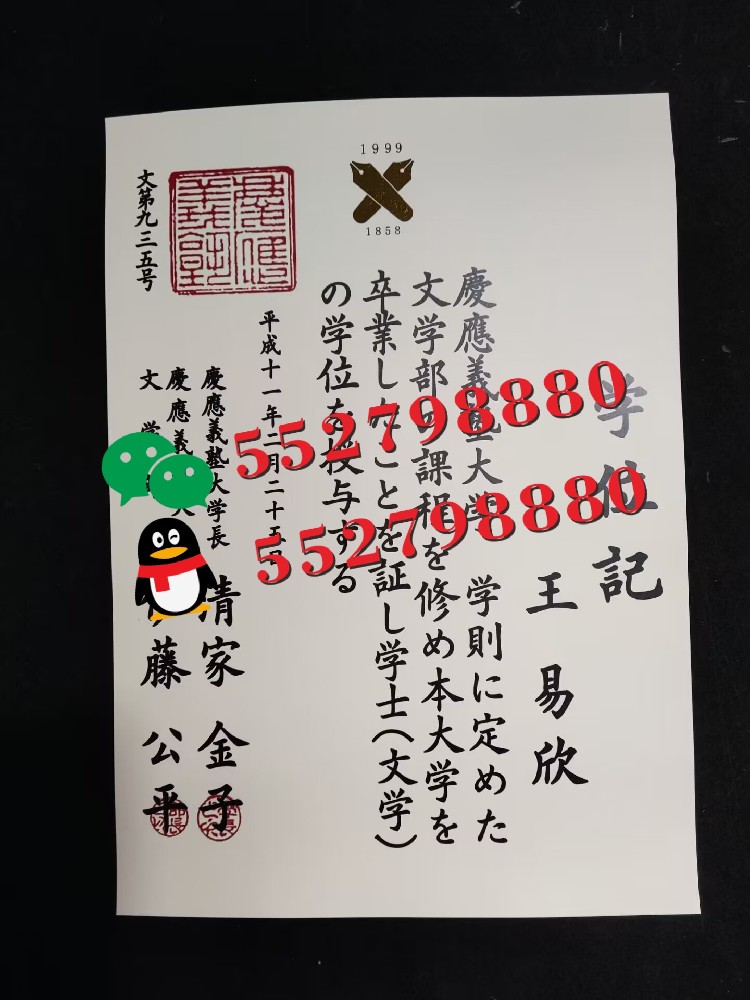 学位記
王易欣
慶應義塾大学 学則に定めた
文学部の課程を修め本大学を
卒業したことを証し学士(文学)
の学位を授与する
平成十一年二月二十五日
慶應義塾大学長 清家 金子
慶應義
文学
藤 公平
文第九三五号
1999
1858
552798880
552798880